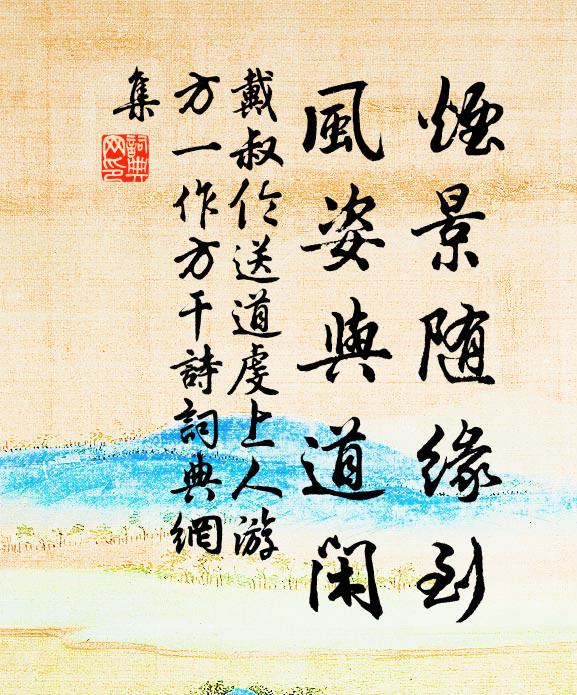 煙景随緣到
風姿與道閑
戴叔伦送道虔上人游
方一作方干詩詞典網
集
詞典網印